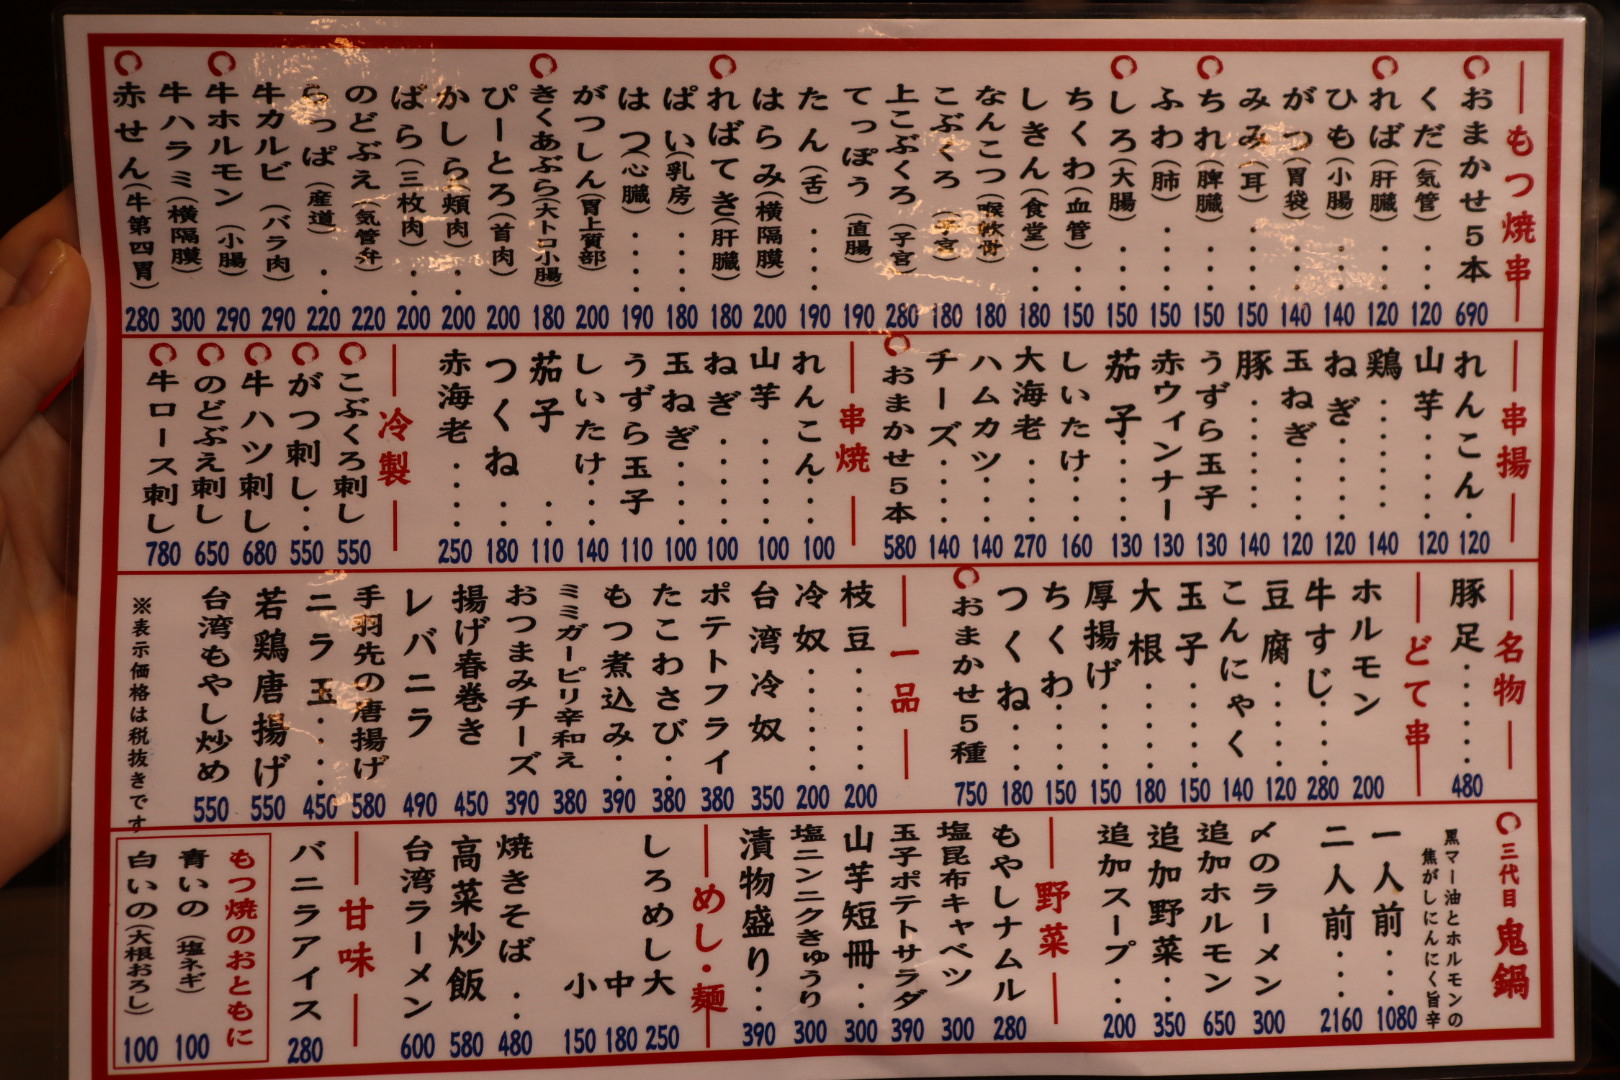 もつ焼串
おまかせ5本 690
くだ(気管)‥ 120
れば(肝臓)‥ 120
ひも(小腸)‥ 140
がつ(胃袋)‥ 140
みみ(耳)‥‥ 150
ちれ(脾臓)‥ 150
ふわ(肺)‥‥ 150
しろ(大腸)‥ 150
ちくわ(血管)‥ 150
しきん(食堂)‥ 180
なんこつ(喉軟骨) 180
こぶくろ(子宮) 180
上こぶくろ(子宮) 280
てっぽう(直腸) 190
たん(舌)‥‥ 190
はらみ(横隔膜) 200
ればてき(肝臓) 180
ぱい(乳房)‥‥ 180
はつ(心臓)‥‥ 190
がつしん(胃上質部) 200
きくあぶら(大トロ小腸) 180
ぴーとろ(首肉) 200
かしら(頬肉)‥ 200
ばら(三枚肉)‥ 200
のどぶえ(気管弁) 220
らっぱ(産道)‥ 220
牛カルビ(バラ肉) 290
牛ホルモン(小腸) 290
牛ハラミ(横隔膜) 300
赤せん(牛第四胃) 280
串揚
れんこん‥ 120
山芋‥‥ 120
鶏‥‥‥ 140
ねぎ‥‥ 120
玉ねぎ‥‥ 120
豚‥‥‥ 140
うずら玉子 130
赤ウィンナー 130
茄子‥‥ 130
しいたけ‥ 160
大海老‥‥ 270
ハムカツ‥ 140
チーズ‥‥ 140
おまかせ5本 580
串焼
れんこん‥ 100
山芋‥‥ 100
ねぎ‥‥ 100
玉ねぎ‥‥ 100
うずら玉子 110
しいたけ‥ 140
茄子‥ 110
つくね‥ 180
赤海老‥‥ 250
冷製
こぶくろ刺し 550
がつ刺し‥ 550
牛ハツ刺し 680
のどぶえ刺し 650
牛ロース刺し 780
名物
豚足‥‥‥ 480
どて串
ホルモン 200
牛すじ‥‥ 280
豆腐‥‥‥ 120
こんにゃく 140
玉子‥‥‥ 150
大根‥‥‥ 180
厚揚げ‥‥ 150
ちくわ‥‥ 150
つくね‥‥ 180
おまかせ5種 750
一品
枝豆‥‥‥ 200
冷奴‥‥‥ 200
台湾冷奴 350
ポテトフライ 380
たこわさび‥ 380
もつ煮込み‥ 390
ミミガーピリ辛和え 380
おつまみチーズ 390
揚げ春巻き 450
レバニラ 490
手羽先の唐揚げ 580
ニラ玉‥‥ 450
若鶏唐揚げ 550
台湾もやし炒め 550
※表示価格は税抜きです
三代目 鬼鍋
黒マー油とホルモンの
焦がしにんにく旨辛
一人前‥‥ 1080
二人前‥ 2160
〆のラーメン 300
追加ホルモン 650
追加野菜‥ 350
追加スープ‥ 200
野菜
もやしナムル 280
塩昆布キャベツ 300
玉子ポテトサラダ 390
山芋短冊‥ 300
塩ニンニクきゅうり 300
漬物盛り‥ 390
めし・麺
しろめし大 250
中 180
小 150
焼きそば‥ 480
高菜炒飯 580
台湾ラーメン 600
甘味
バニラアイス 280
もつ焼のおともに
青いの(塩ネギ) 100
白いの(大根おろし) 100